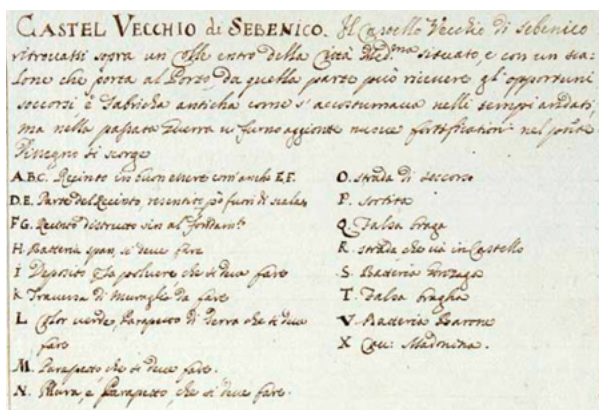 CASTEL VECCHIO di SEBENICO. Il Castello Vecchio di Sebenico
ritrovassi sopra un Colle entro della Città Med.ma situato, e con un sca=
lone che porta al Porto, da quella parte può ricevere gl'opportuni
soccorsi, è fabricha anticha come s'accostumava nelli tempi andati,
ma nella passata Guerra vi furno aggionte nuove fortificationi nel
si scorge
A.B.C. Recinto in buon essere com'anche E.F.
D.E. Parte del Recinto, può fuori di scala
F G. Recinto distrutto sin al
H. Batteria si deve fare
I Deposito p la polvere, che si deve fare
K Traversa di Muraglia da fare
L Color verde, Parapetto di Terra che si deve
fare
M. Parapetto, che si deve fare.
N. Mura, e Parapetto, che si deve fare.
O. strada di soccorso
P. sortita
Q. Falsa braga
R. strada che và in Castello
S. Batteria
T. Falsa braghа
V. Batteria Barone
X Madonina.